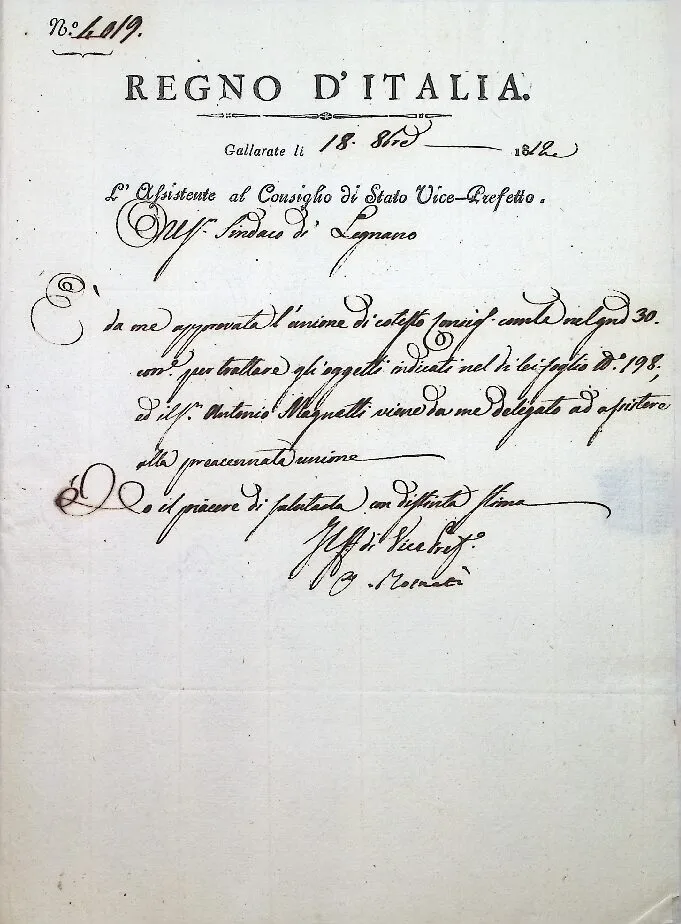 N.º 4019.
REGNO D'ITALIA.
Gallarate li 18. 8bre 1812
L'Assistente al Consiglio di Stato Vice-Prefetto.
Al Sr. Sindaco di Legnano
È da me approvata l'unione di cotesto Consig. comle nel gno 30.
corre. per trattare gli oggetti indicati nel di lei foglio N.º 198,
ed il Sr. Antonio Magnetti viene da me delegato ad assistere
alla preaccennata unione
Ho il piacere di salutarla con distinta stima
di Vice Pref.º